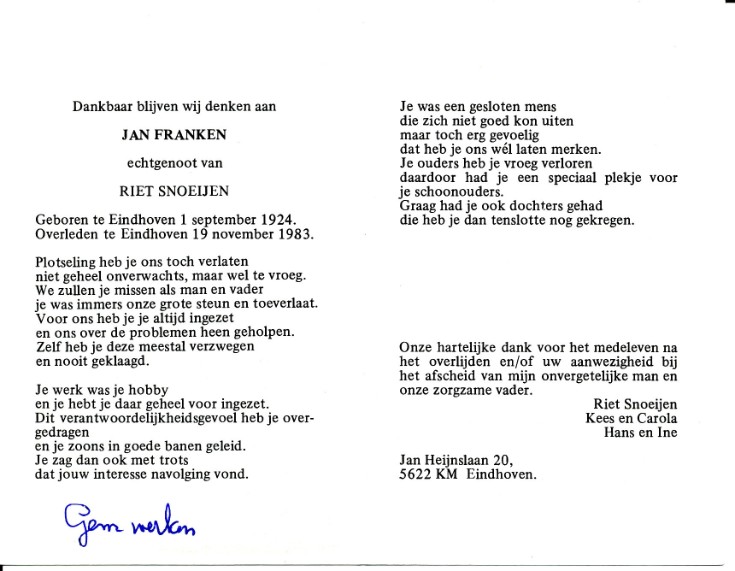 Dankbaar blijven wij denken aan
JAN FRANKEN
echtgenoot van
RIET SNOEIJEN
Geboren te Eindhoven 1 september 1924.
Overleden te Eindhoven 19 november 1983.
Plotseling heb je ons toch verlaten
niet geheel onverwachts, maar wel te vroeg.
We zullen je missen als man en vader
je was immers onze grote steun en toeverlaat.
Voor ons heb je je altijd ingezet
en ons over de problemen heen geholpen.
Zelf heb je deze meestal verzwegen
en nooit geklaagd.
Je werk was je hobby
en je hebt je daar geheel voor ingezet.
Dit verantwoordelijkheidsgevoel heb je over-
gedragen
en je zoons in goede banen geleid.
Je zag dan ook met trots
dat jouw interesse navolging vond.
Gem werken
Je was een gesloten mens
die zich niet goed kon uiten
maar toch erg gevoelig
dat heb je ons wél laten merken.
Je ouders heb je vroeg verloren
daardoor had je een speciaal plekje voor
je schoonouders.
Graag had je ook dochters gehad
die heb je dan tenslotte nog gekregen.
Onze hartelijke dank voor het medeleven na
het overlijden en/of uw aanwezigheid bij
het afscheid van mijn onvergetelijke man en
onze zorgzame vader.
Riet Snoeijen
Kees en Carola
Hans en Ine
Jan Heijnslaan 20,
5622 KM Eindhoven.